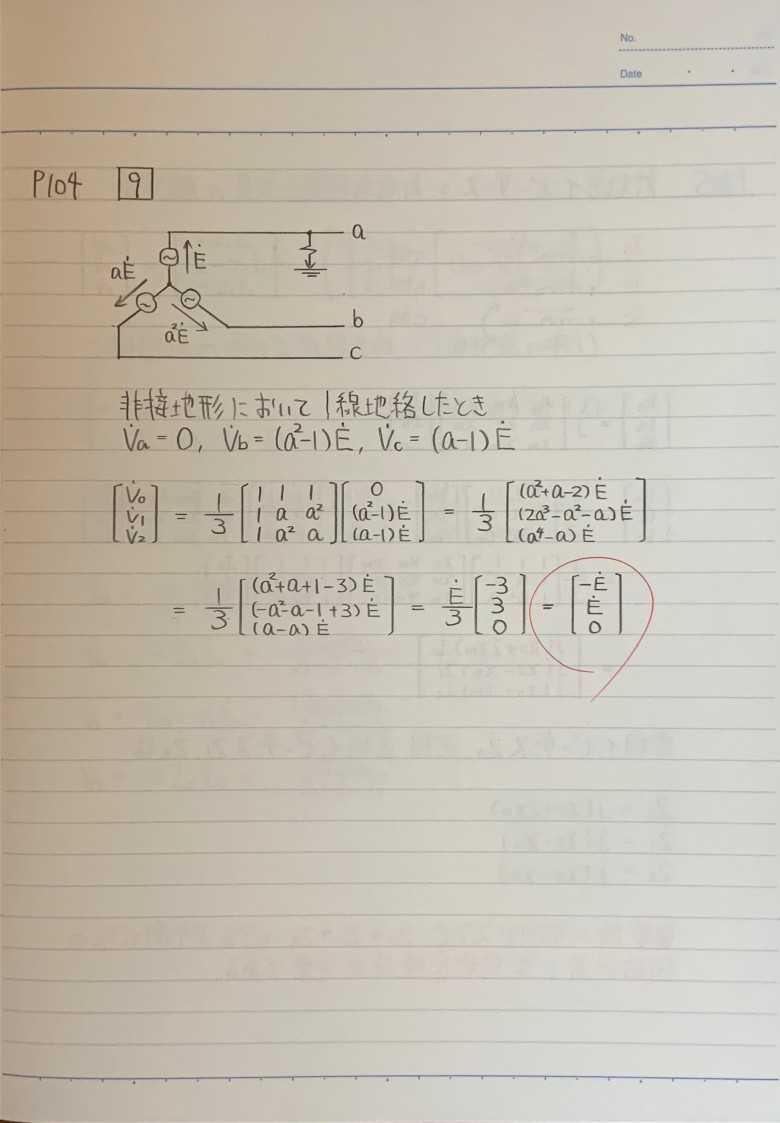 No.
Date
P104 9
a
Ė
aĖ
a²Ė
b
c
非接地形において1線地絡したとき
V̇a = 0, V̇b = (a²-1)Ė, V̇c = (a-1)Ė
[V̇0 V̇1 V̇2] = 1/3 [1 1 1 1 a a² 1 a² a] [0 (a²-1)Ė (a-1)Ė] = 1/3 [(a²+a-2)Ė (2a³-a²-a)Ė (a⁴-a)Ė]
= 1/3 [(a²+a+1-3)Ė (-a²-a-1+3)Ė (a-a)Ė] = Ė/3 [-3 3 0] = [-Ė Ė 0]